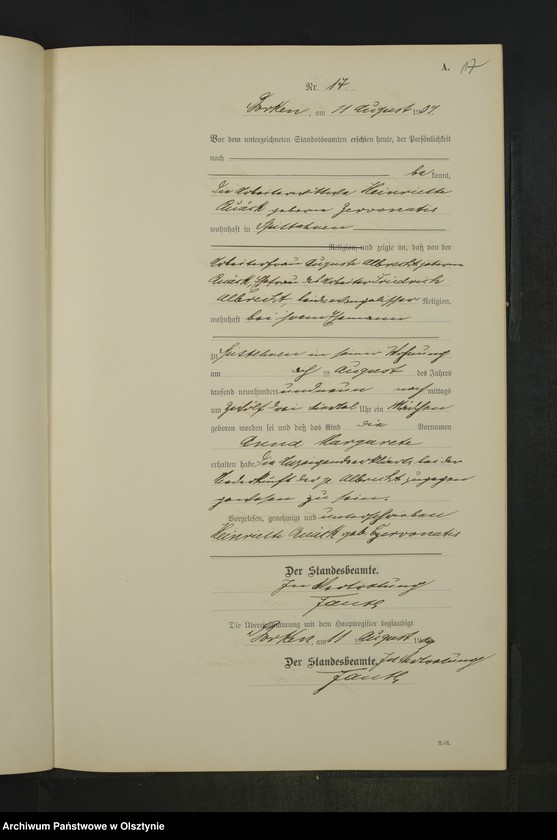 A. 17
Nr. 17
Borken, am 11 August 1909.
Vor dem unterzeichneten Standesbeamten erschien heute, der Persönlichkeit
nach
be kannt,
die Arbeiterwittwe Heinriette
geborene
wohnhaft in
Religion, und zeigte an, daß von der
Arbeiterfrau Auguste Albrecht geborene
Ehefrau des Arbeiter Friedrich
Albrecht, beide evangelischer Religion,
wohnhaft bei ihrem Ehemann
zu in seiner Wohnung
am August des Jahres
tausend neunhundert und neun nach mittags
um zwölf drei viertel Uhr ein Mädchen
geboren worden sei und daß das Kind die Vornamen
Anna Margarete
erhalten habe. Die Anzeigende erklärte, bei der
Niederkunft der p. Albrecht zugegen
gewesen zu sein.
Vorgelesen, genehmigt und unterschrieben
Heinriette geb.
Der Standesbeamte.
In Vertretung
Die Übereinstimmung mit dem Hauptregister beglaubigt
Borken, am 11 August 1909
Der Standesbeamte. In Vertretung
Archiwum Państwowe w Olsztynie